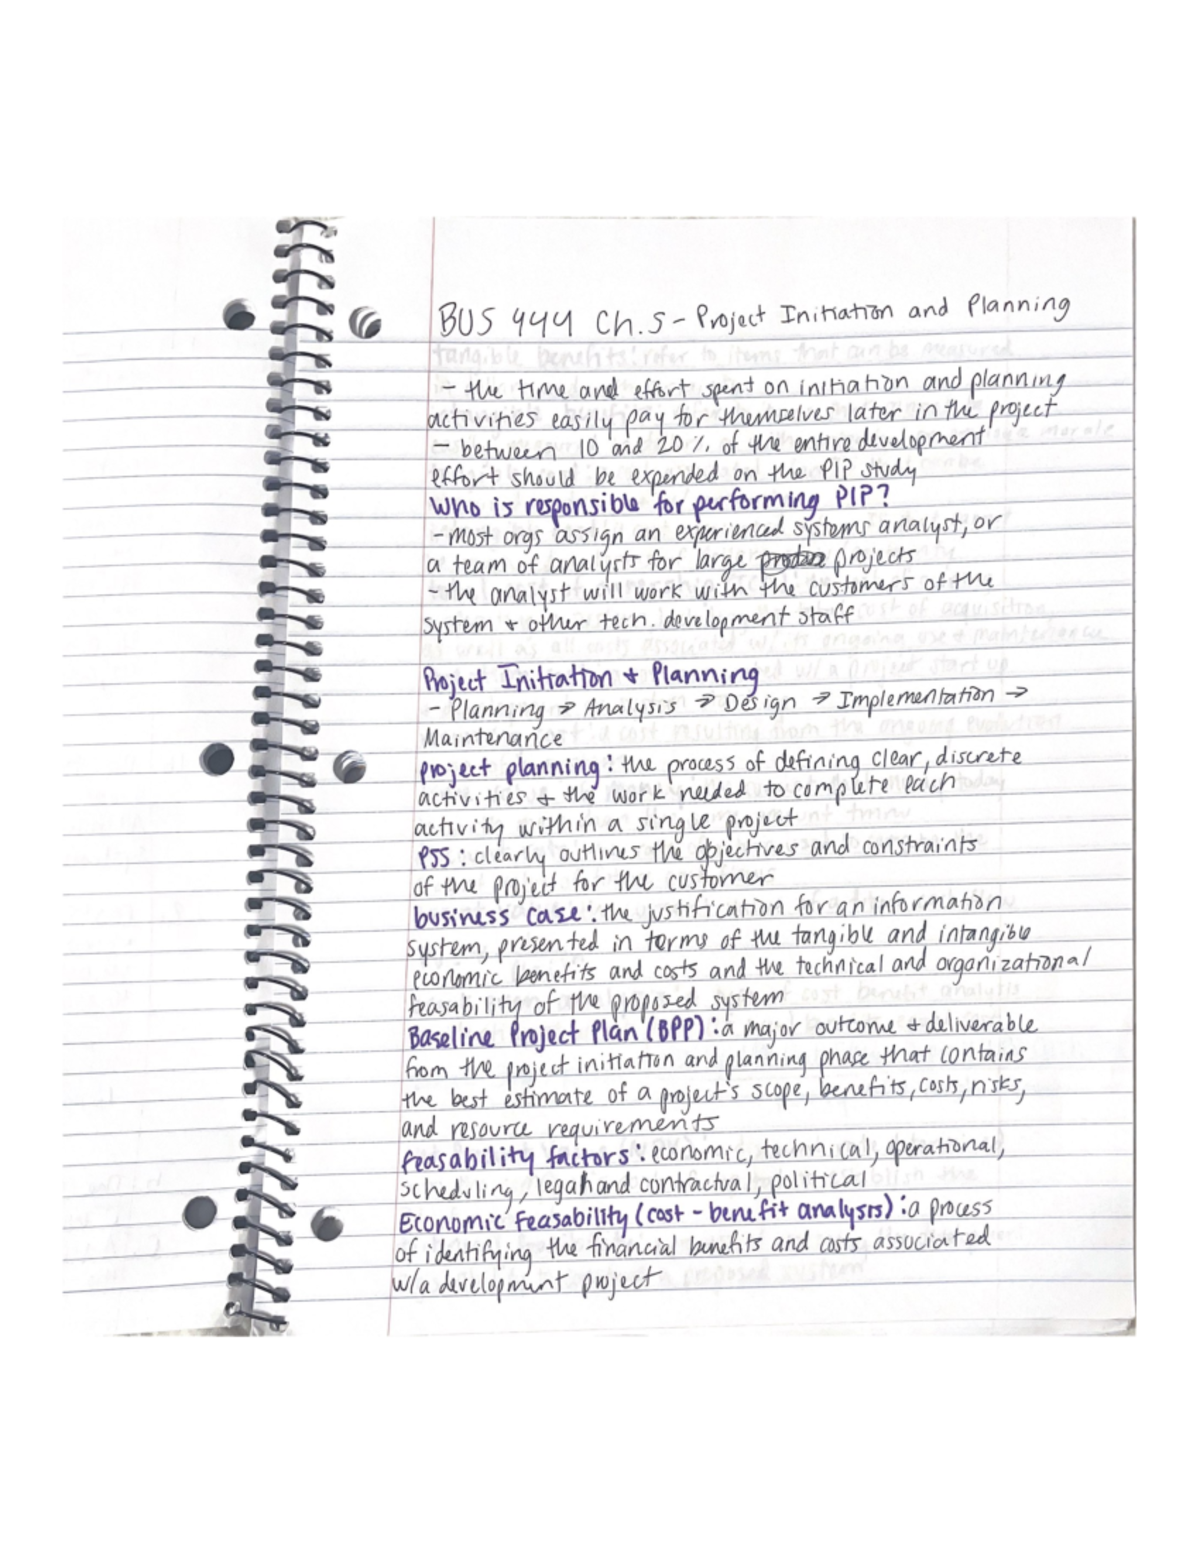 BUS 444 Ch. 5 - Project Initiation and Planning
- the time and effort spent on initiation and planning
activities easily pay for themselves later in the project
- between 10 and 20% of the entire development
effort should be expended on the PIP study
Who is responsible for performing PIP?
- most orgs assign an experienced systems analyst, or
a team of analysts for large projects
- the analyst will work with the customers of the
system + other tech. development staff
Project Initiation + Planning
- Planning → Analysis → Design → Implementation →
Maintenance
project planning: the process of defining clear, discrete
activities + the work needed to complete each
activity within a single project
PSS: clearly outlines the objectives and constraints
of the project for the customer
business case: the justification for an information
system, presented in terms of the tangible and intangible
economic benefits and costs and the technical and organizational
feasability of the proposed system
Baseline Project Plan (BPP): a major outcome + deliverable
from the project initiation and planning phase that contains
the best estimate of a project's scope, benefits, costs, risks,
and resource requirements
feasability factors: economic, technical, operational,
scheduling, legal and contractual, political
Economic Feasability (cost-benefit analysis): a process
of identifying the financial benefits and costs associated
w/a development project